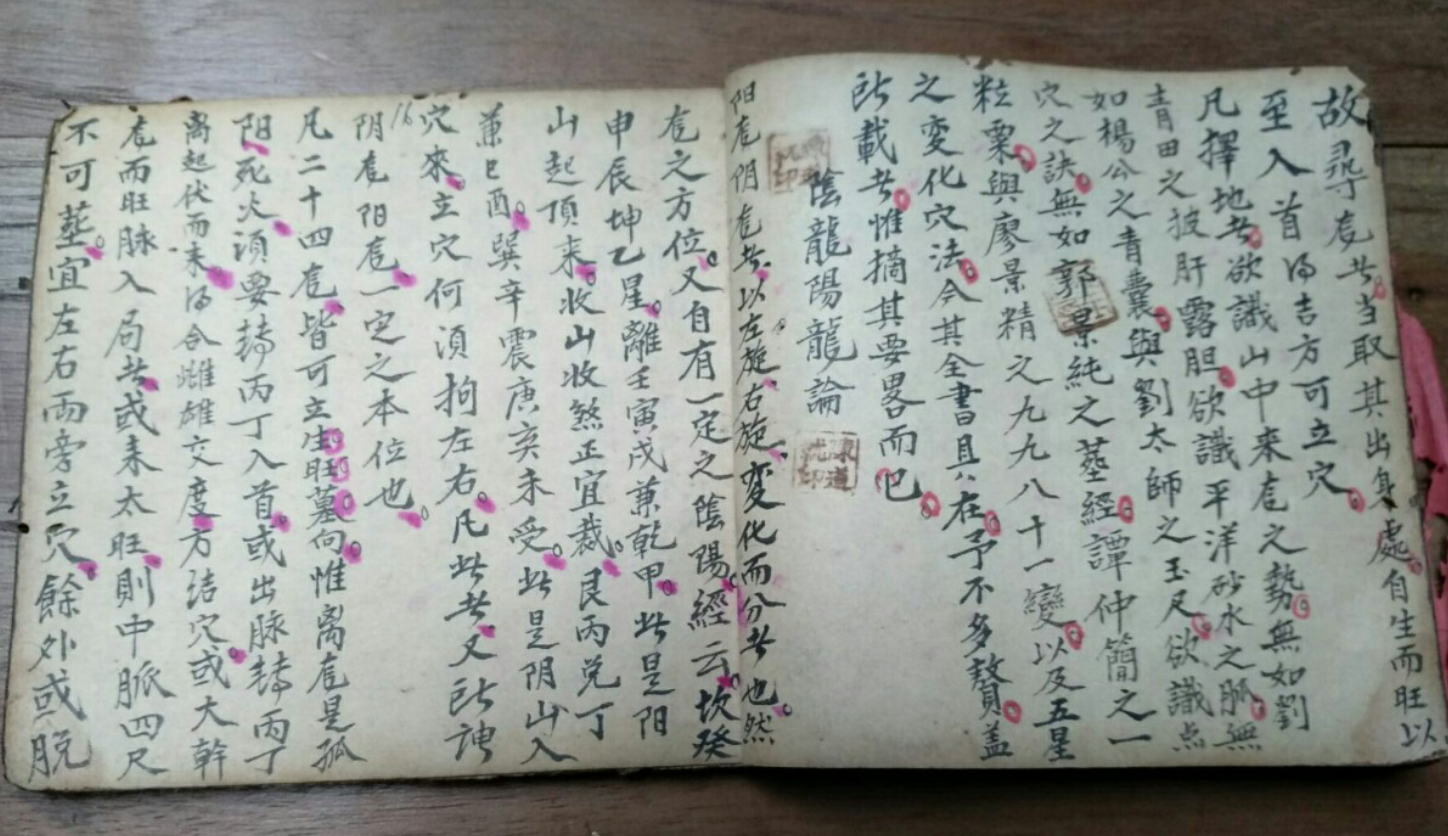 故尋龙者当取其出身處自生而旺以
至入首得吉方可立穴
凡擇地者欲識山中来龙之勢無如劉
青田之披肝露胆欲識平洋砂水之脈無
如楊公之青囊與劉太師之玉尺欲識点
穴之訣無如郭景純之塟經譚仲簡之一
粒粟與廖景精之九九八十一變以及五星
之变化穴法今其全書具在予不多贅盖
所載者惟摘其要畧而已
陰龍陽龍論
阳龙阴龙者以左旋右旋变化而分者也然
龙之方位又自有一定之陰陽經云坎癸
申辰坤乙星離壬寅戌兼乾甲此是阳
山起頂来收山收煞正宜裁艮丙兑丁
兼巳酉巽辛震庚亥未受此是阴山入
穴來立穴何須拘左右凡此者又所謂
阴龙阳龙一定之本位也
16
凡二十四龙皆可立生旺墓向惟离龙是孤
阳死火須要轉丙丁入首或出脉轉丙丁
离起伏而来得合雌雄交度方结穴或大幹
龙而旺脉入局者或来太旺則中脈四尺
不可塟宜左右两旁立穴餘外或脱